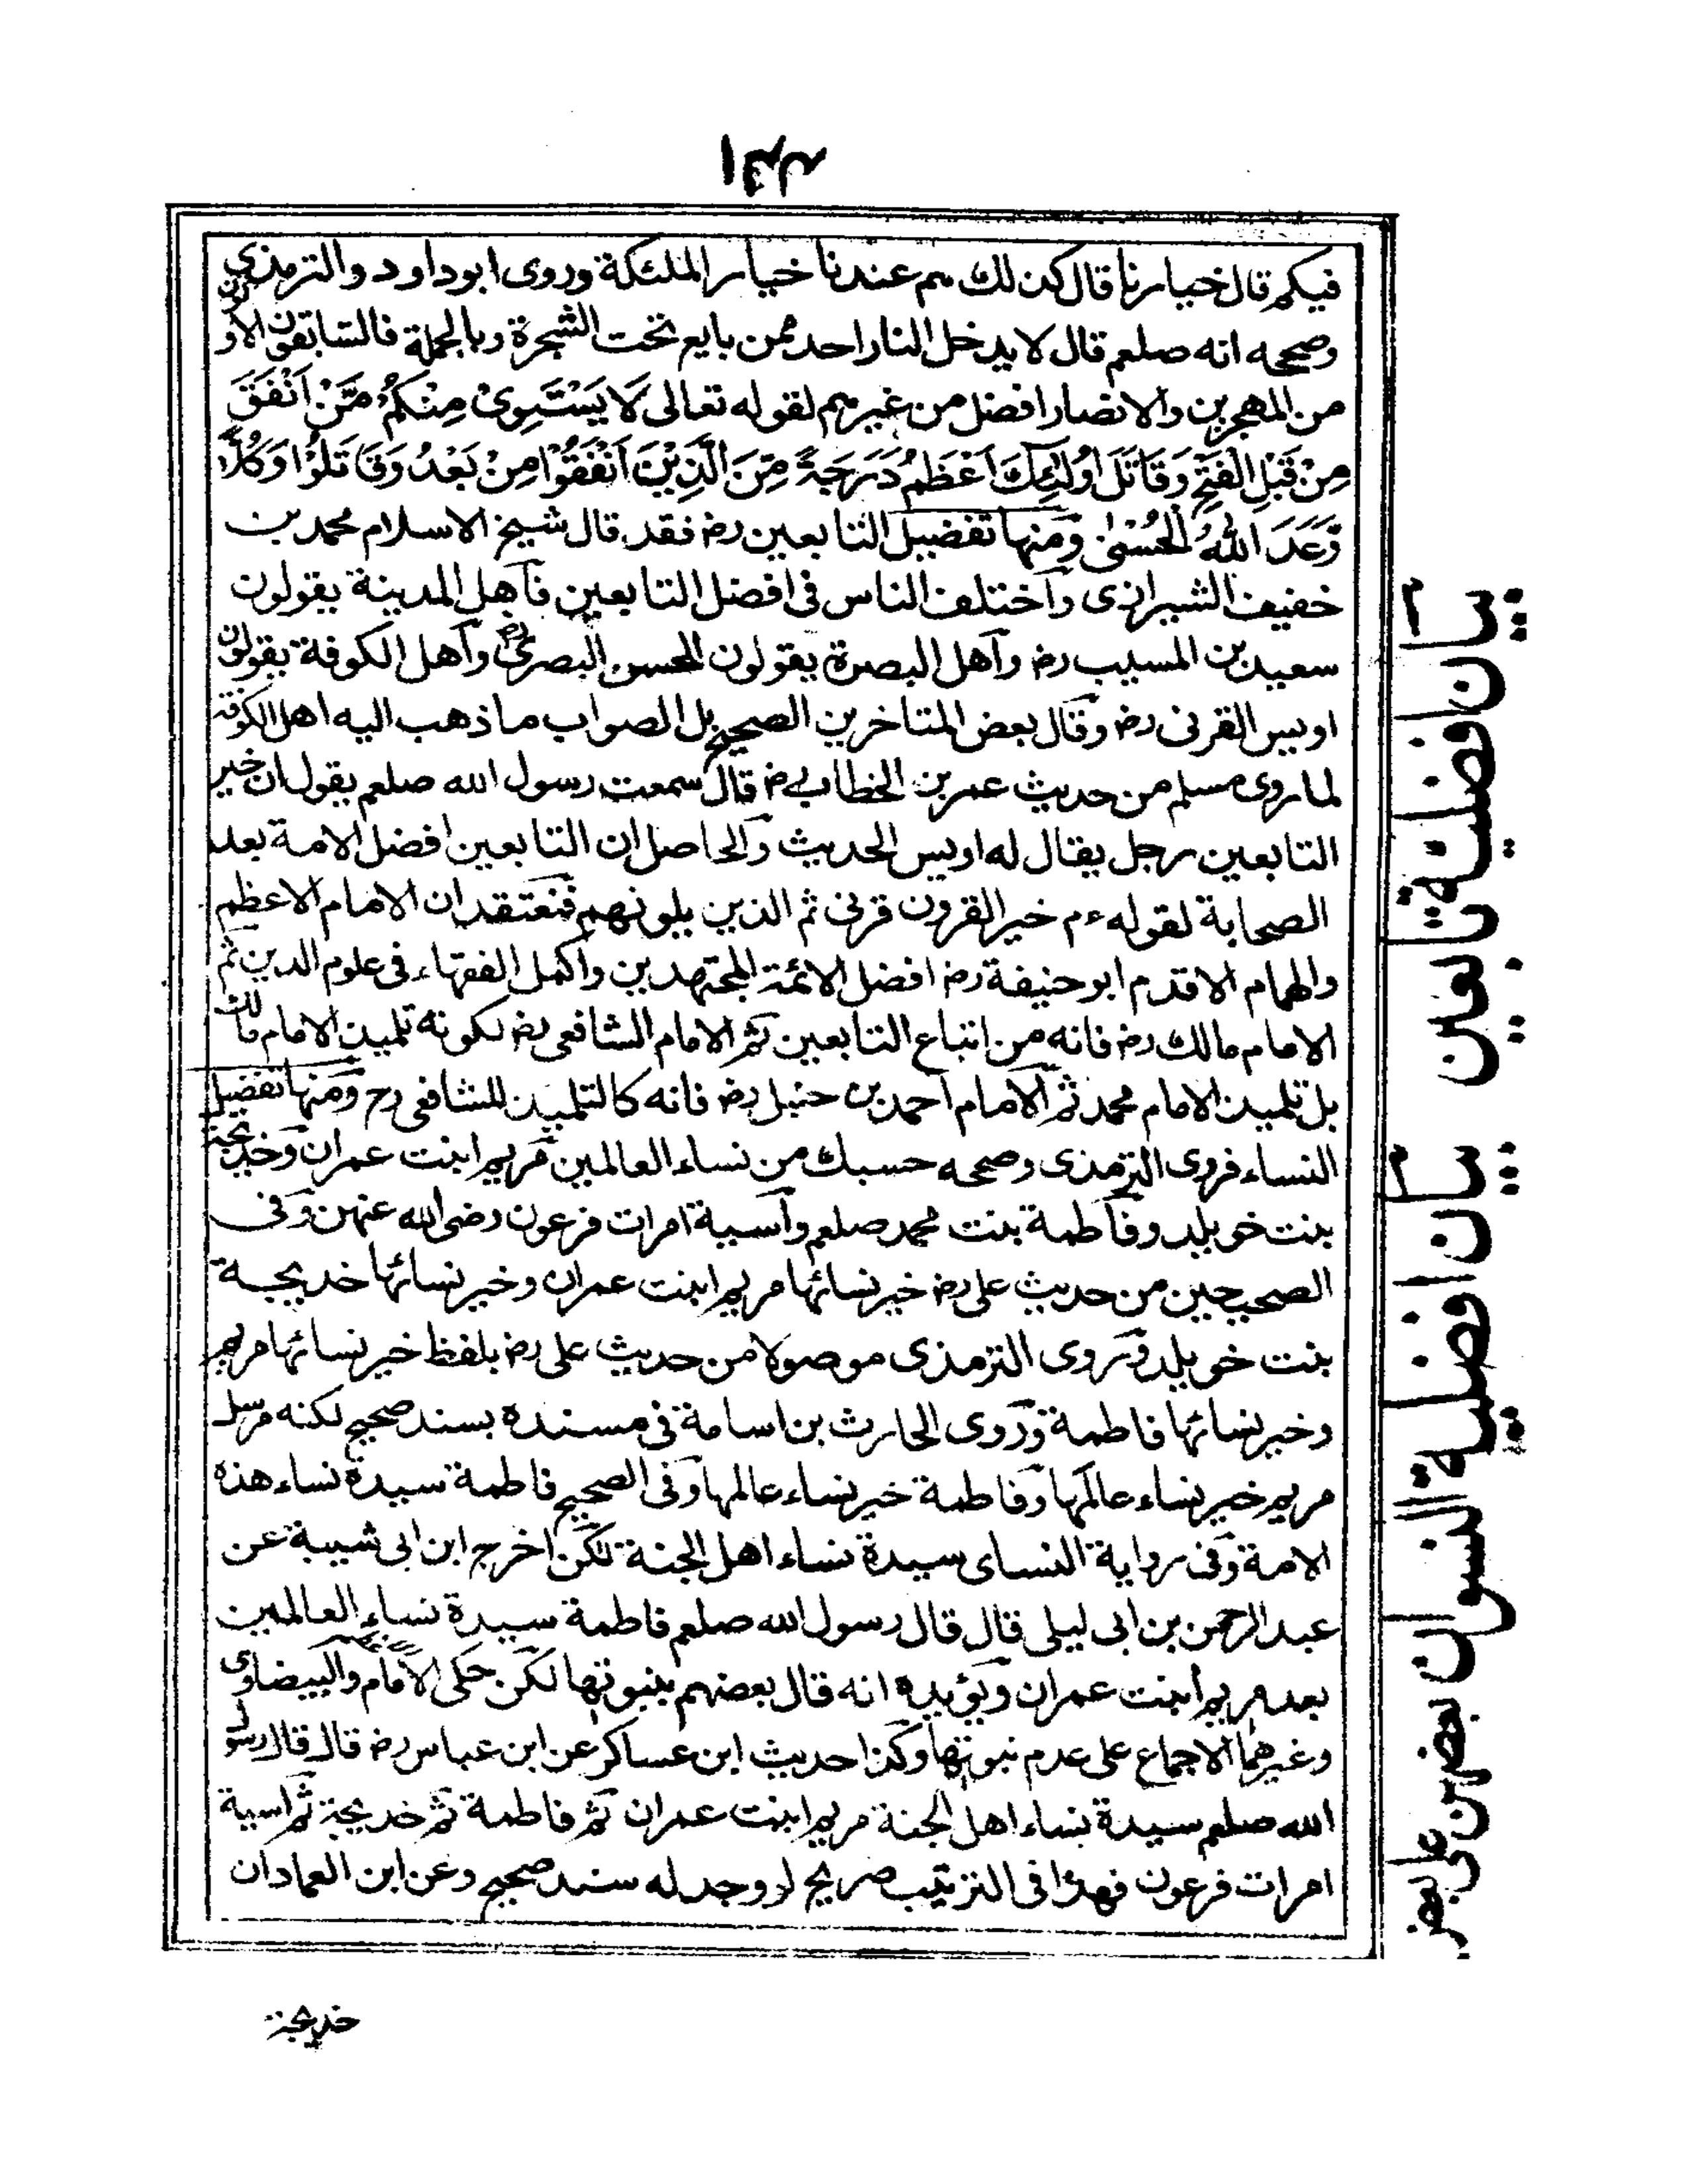 فيكم قال خيارنا قال كذلك هم عندنا خيار الملئكة وروى ابوداود والترمذي
وصححه انه صلعم قال لا يدخل النار احد ممن بايع تحت الشجرة وبالجملة فالسابقون الاولون
من المهجرين والانصار افضل من غيرهم لقوله تعالى لَا يَسْتَوِىْ مِنْكُمْ مَّنْ اَنْفَقَ
مِنْ قَبْلِ الْفَتْحِ وَقَاتَلَ اُولٰئِكَ اَعْظَمُ دَرَجَةً مِّنَ الَّذِيْنَ اَنْفَقُوْا مِنْ بَعْدُ وَقَاتَلُوْا وَكُلًّا
وَّعَدَ اللّٰهُ الْحُسْنٰى ومنها تفضيل التابعين رض فقد قال شيخ الاسلام محمد بن
خفيف الشيرازى واختلف الناس فى افضل التابعين فاهل المدينة يقولون
سعيد بن المسيب رض واهل البصرة يقولون الحسن البصرى رض واهل الكوفة يقولون
اويس القرنى رض وقال بعض المتاخرين الصحيح بل الصواب ما ذهب اليه اهل الكوفة
لما روى مسلم من حديث عمر بن الخطاب رض قال سمعت رسول الله صلعم يقول ان خير
التابعين رجل يقال له اويس الحديث والحاصل ان التابعين افضل الامة بعد
الصحابة لقوله ءم خير القرون قرنى ثم الذين يلونهم فنعتقد ان الامام الاعظم
والهمام الاقدم ابوحنيفة رض افضل الائمة المجتهدين واكمل الفقهاء فى علوم الدين ثم
الامام مالك رض فانه من اتباع التابعين ثم الامام الشافعى رض لكونه تلميذ الامام مالك
بل تلميذ الامام محمد ثم الامام احمد بن حنبل رض فانه كالتلميذ للشافعى رح ومنها تفضيل
النساء فروى الترمذى وصححه حسبك من نساء العالمين مريم ابنت عمران وخديجة
بنت خويلد وفاطمة بنت محمد صلعم وآسية امرات فرعون رضى الله عنهن وفى
الصحيحين من حديث على رض خير نسائها مريم ابنت عمران وخير نسائها خديجة
بنت خويلد وروى الترمذى موصولا من حديث على رض بلفظ خير نسائها مريم
وخير نسائها فاطمة وروى الحارث بن اسامة فى مسنده بسند صحيح لكنه مرسل
مريم خير نساء عالمها وفاطمة خير نساء عالمها وفى الصحيح فاطمة سيدة نساء هذه
الامة وفى رواية النساى سيدة نساء اهل الجنة لكن اخرج ابن ابى شيبة عن
عبد الرحمن بن ابى ليلى قال قال رسول الله صلعم فاطمة سيدة نساء العالمين
بعد مريم ابنت عمران ويؤيده انه قال بعضهم بنبوتها لكن حكى الامام والبيضاوى
وغيرهما الاجماع على عدم نبوتها وكذا حديث ابن عساكر عن ابن عباس رض قال قال رسول
الله صلعم سيدة نساء اهل الجنة مريم ابنت عمران ثم فاطمة ثم خديجة ثم اسية
امرات فرعون فهذا فى الترتيب صريح لو وجد له سند صحيح وعن ابن العماد ان
خديجة
بيان افضلية تابعين
بيان افضلية النسوان بعضهن على بعض